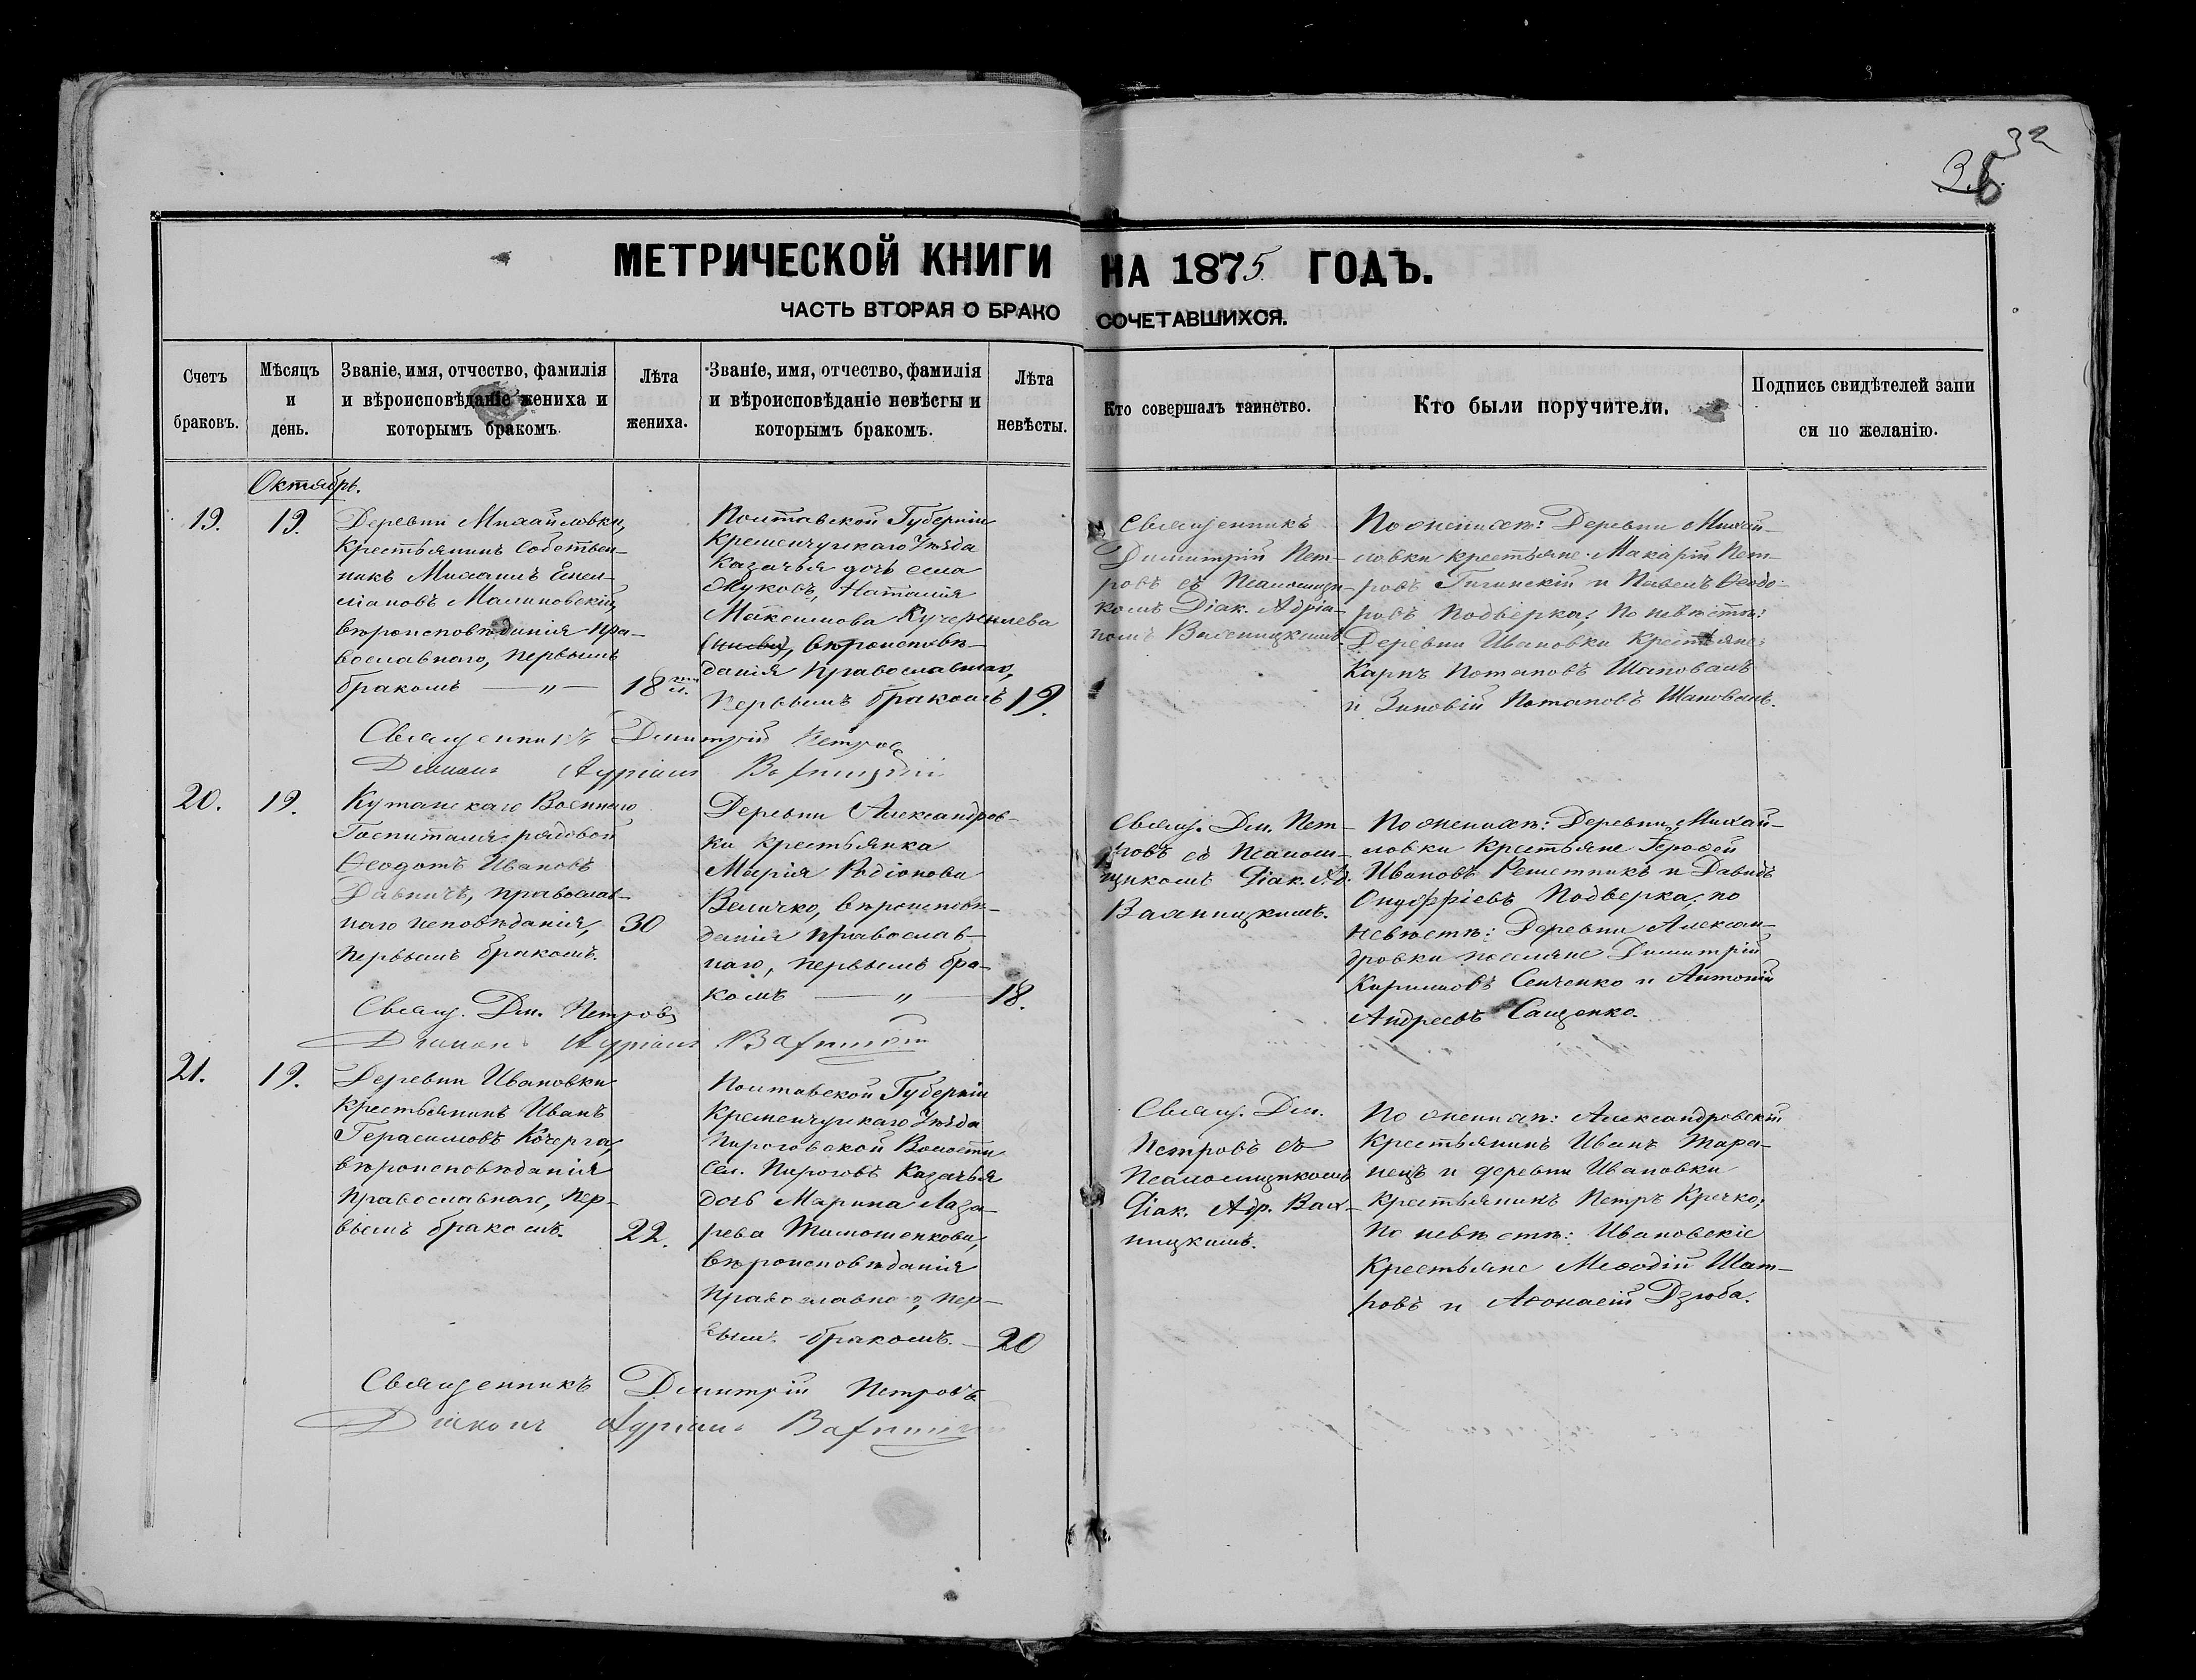 32
36.
МЕТРИЧЕСКОЙ КНИГИ НА 1875 ГОДЪ.
ЧАСТЬ ВТОРАЯ О БРАКОСОЧЕТАВШИХСЯ.
Счетъ браковъ.
Мѣсяцъ и день.
Званіе, имя, отчество, фамилія
и вѣроисповѣданіе жениха и
которымъ бракомъ.
Лѣта жениха.
Званіе, имя, отчество, фамилія
и вѣроисповѣданіе невѣсты и
которымъ бракомъ.
Лѣта невѣсты.
Кто совершалъ таинство.
Кто были поручители.
Подпись свидѣтелей запи
си по желанію.
Октябрь.
19.
19.
Деревни Михайловки,
Крестьянинъ Собствен-
никъ Михаилъ Емел-
ліановъ Малиновскій,
вѣроисповѣданія пра-
вославнаго, первымъ
бракомъ — „ —
18
Полтавской Губерніи
Кременчугскаго Уѣзда
Казачья дочь села
Жуковъ, Наталия
Максимова Кучерявева
вѣроисповѣ-
данія православнаго,
первымъ бракомъ
19.
Священникъ
Димитрій Пет-
ровъ съ Псаломщи-
комъ Діак. Адріа-
номъ
По женихѣ: Деревни Михай-
ловки крестьяне Макарій Пет-
ровъ Гичинскій и Павелъ Ѳеодо-
ровъ Подверка; По невѣстѣ:
Деревни Ивановки Крестьяне:
Карпъ Потаповъ Шаповалъ
и Зиновій Потаповъ Шаповалъ.
Священникъ Димитрій Петровъ
Діаконъ Адріанъ
20.
19.
Кутаисскаго Военнаго
Госпиталя рядовой
Ѳеодотъ Ивановъ
православ-
наго исповѣданія,
первымъ бракомъ.
30
Деревни Александров-
ки крестьянка
Марія Родіонова
Величко, вѣроисповѣ-
данія православ-
наго, первымъ бра-
комъ — „ —
18.
Свящ. Дм. Пет-
ровъ съ Псалом-
щикомъ Діак. Ад.
По женихѣ: Деревни Михай-
ловки Крестьяне Герасей
Ивановъ Решетникъ и Давидъ
Онуфріевъ Подверка, по
невѣстѣ: Деревни Алексан-
дровки поселяне Димитрій
Кириловъ Сенченко и Антоній
Андреевъ Сащенко.
Свящ. Дм. Петровъ
Діаконъ Адріанъ
21.
19.
Деревни Ивановки
Крестьянинъ Иванъ
Герасимовъ Кочерга,
вѣроисповѣданія
Православнаго, пер-
вымъ бракомъ.
22.
Полтавской Губерніи
Кременчугскаго Уѣзда
Пироговской Волости
Сел. Пироговъ Казачья
дочь Марина Лаза-
рева Тимошенкова,
вѣроисповѣданія
православнаго, пер-
вымъ бракомъ. —
20
Свящ. Дм.
Петровъ съ
Псаломщикомъ
Діак. Адр.
По женихѣ: Александровскій
Крестьянинъ Иванъ Тара-
нецъ и деревни Ивановки
Крестьянинъ Петръ Кречко;
По невѣстѣ: Ивановскіе
Крестьяне Меѳодій Шат-
ровъ и Аѳонасій Дзюба.
Священникъ Димитрій Петровъ
Діаконъ Адріанъ